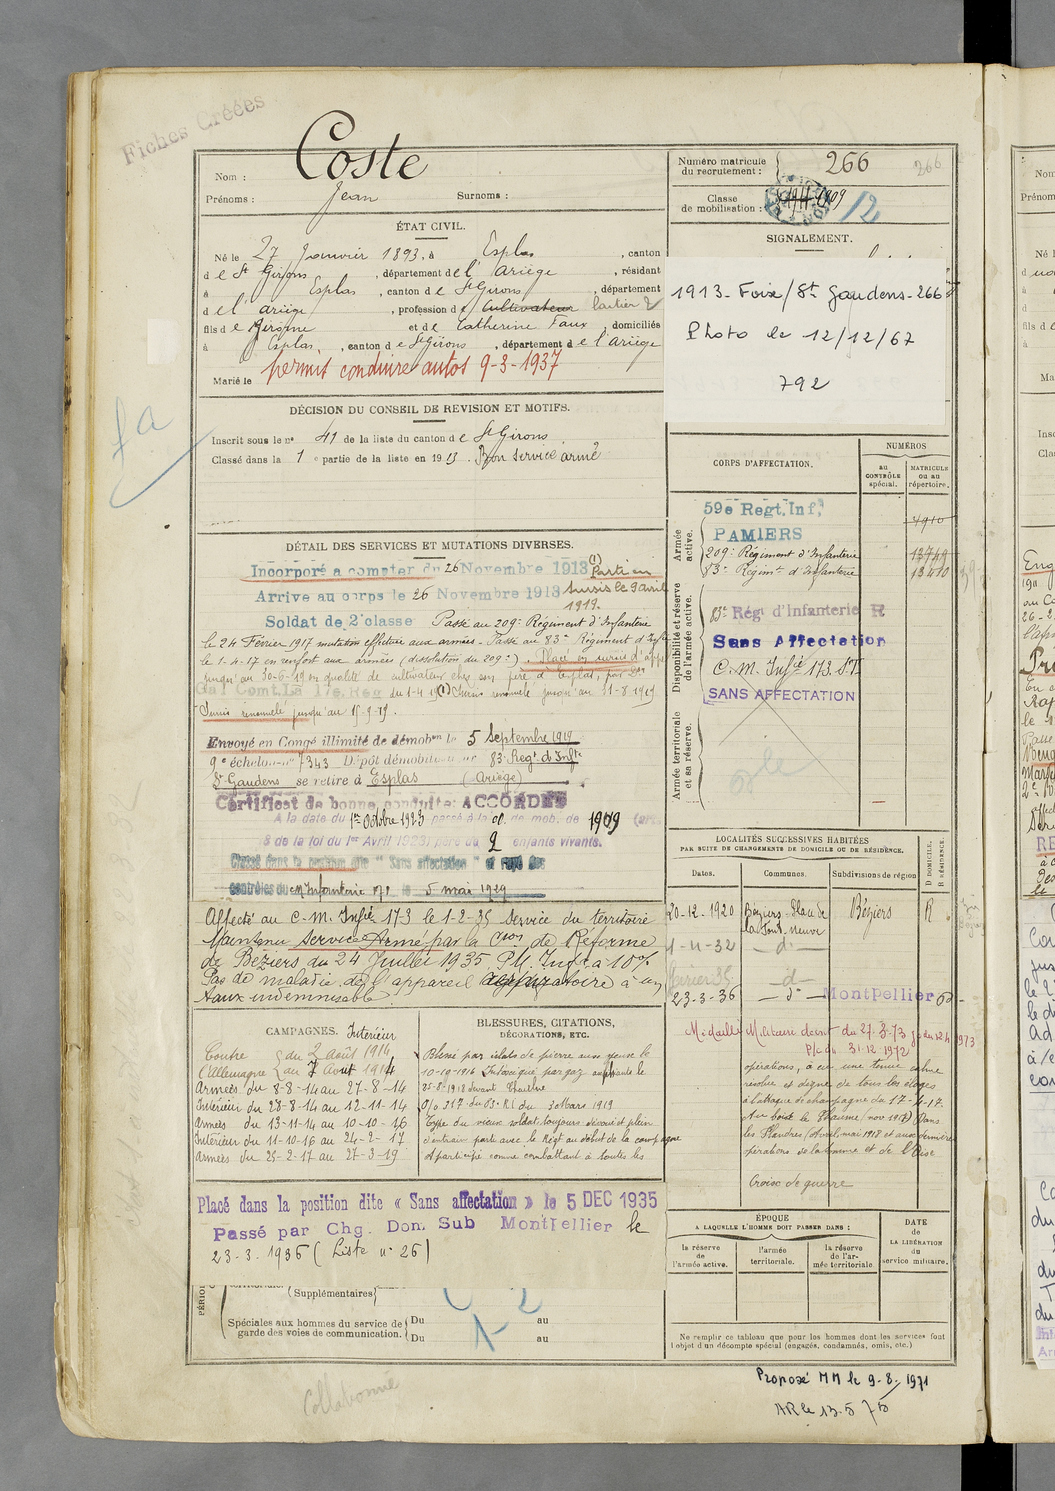 Fiches Créées
Coste
Nom :
Prénoms : Jean Surnoms :
Numéro matricule du recrutement : 266 266
Classe de mobilisation : 1909 12
ÉTAT CIVIL.
Né le 27 Janvier 1893, à Esplas, canton
de St Girons, département de l'Ariège, résidant
à Esplas, canton de St Girons, département
de l'ariège, profession de Cultivateur laitier
fils de Jérôme et de Catherine Faux, domiciliés
à Esplas, canton de St Girons, département de l'ariège
Marié le
permis conduire autos 9-3-1937
SIGNALEMENT.
1913 - Foix/St Gaudens - 266
Photo le 12/12/67
792
DÉCISION DU CONSEIL DE REVISION ET MOTIFS.
Inscrit sous le no 41 de la liste du canton de St Girons
Classé dans la 1e partie de la liste en 1913. Bon service armé
CORPS D'AFFECTATION.
NUMÉROS
au CONTRÔLE spécial.
MATRICULE ou au répertoire.
Armée active.
59e Regt. Inf.
PAMIERS
209e Régiment d'Infanterie 13749
83e Régimt d'Infanterie 13410
Disponibilité et réserve de l'armée active.
83e Régt d'Infanterie R
Sans Affectation
C. M. Infie 173 S.T.
SANS AFFECTATION
Armée territoriale et sa réserve.
DÉTAIL DES SERVICES ET MUTATIONS DIVERSES.
Incorporé a compter du 26 Novembre 1913 (1) Parti en
Arrive au corps le 26 Novembre 1913 sursis le 9 avril
1919.
Soldat de 2e classe Passé au 209e Régiment d'Infanterie
le 24 Février 1917 mutation effectuée aux armées. Passé au 83e Régiment d'Infie
le 1-4-17 en renfort aux armées (dissolution du 209e). Placé en sursis d'appel
jusqu'au 30-6-19 en qualité de cultivateur chez son père à Esplas, par Don
Gal Comt. La 17e Reg du 1-4-19 (1) Sursis renouvelé jusqu'au 31-8-1919
Sursis renouvelé jusqu'au 15-9-19.
Envoyé en Congé illimité de démobon le 5 Septembre 1919
9e échelon no 7343 Dépôt démobilisateur 83e Regt d'Infie
St Gaudens se retire à Esplas (Ariège)
Certificat de bonne conduite: ACCORDÉ
A la date du 1er Octobre 1923 passé à la cl. de mob. de 1909 (art.
8 de la loi du 1er Avril 1923) père de 2 enfants vivants.
Classé dans la position dite "Sans affectation" et rayé des
contrôles du C.M. Infanterie 171 le 5 mai 1929
Affecté au C.M. Infie 173 le 1-2-35 Service du territoire
Maintenu Service Armé par la Con de Réforme
de Béziers du 24 Juillet 1935 P.M. Infre à 10%
Pas de maladie de l'appareil respiratoire à un
taux indemnisable
LOCALITÉS SUCCESSIVES HABITÉES
PAR SUITE DE CHANGEMENTS DE DOMICILE OU DE RÉSIDENCE.
Dates. Communes. Subdivisions de région D DOMICILE. R RÉSIDENCE.
20-12-1920 Béziers Plan de la Font neuve Béziers R
1-11-32 — d° —
février 35 — d —
23-3-36 — d° — Montpellier
Médaille Militaire décret du 27-3-73
P/c du 31-12-1972
CAMPAGNES. Intérieur
Contre l'allemagne du 2 août 1914 au 7 Aout 1914
Armées du 8-8-14 au 27-8-14
Intérieur du 28-8-14 au 12-11-14
Armées du 13-11-14 au 10-10-16
Intérieur du 11-10-16 au 24-2-17
Armées du 25-2-17 au 27-3-19
BLESSURES, CITATIONS,
DÉCORATIONS, ETC.
Blessé par éclats de pierre aux yeux le
10-10-1916 Intoxiqué par gaz
25-8-1918 devant
O/o 317 du 83e R.I. du 3 Mars 1919
Type du vieux soldat toujours dévoué et plein
d'entrain parti avec le Régt au début de la campagne
et participé comme combattant à toutes les
opérations, a eu une tenue calme
résolue et digne de tous les éloges
à l'attaque de champagne du 17-4-17.
Au bois le Chaume (nov 1917) Dans
les Flandres (Avril, mai 1918 et aux dernières
opérations de la Somme et de l'Oise
Croix de guerre
Placé dans la position dite « Sans affectation » le 5 DEC 1935
Passé par Chg. Dom. Sub Montpellier le
23-3-1936 (Liste n° 26)
ÉPOQUE
A LAQUELLE L'HOMME DOIT PASSER DANS :
la réserve de l'armée active.
l'armée territoriale.
la réserve de l'armée territoriale
DATE
de
LA LIBÉRATION
du
service militaire.
PÉRIO
(Supplémentaires)
Spéciales aux hommes du service de garde des voies de communication.
Du au
Du au
Ne remplir ce tableau que pour les hommes dont les services font
l'objet d'un décompte spécial (engagés, condamnés, omis, etc.)
Proposé MM le 9-8-1971
AR le 13-5-75
Collationné